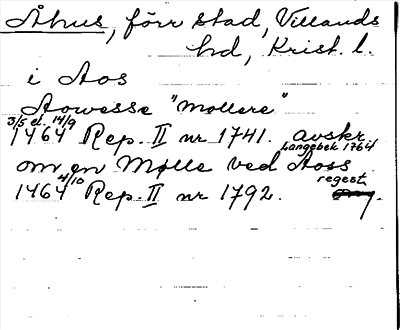 Åhus, förr stad, Villands
hd, Krist. l.
i Aos
Aowesse "Møllere"
3/5 el. 14/9
1464 Rep. II nr 1741. avskr.
Langebek 1764
om en Mølle ved Aoss
4/10 regest
1464 Rep. II nr 1792.